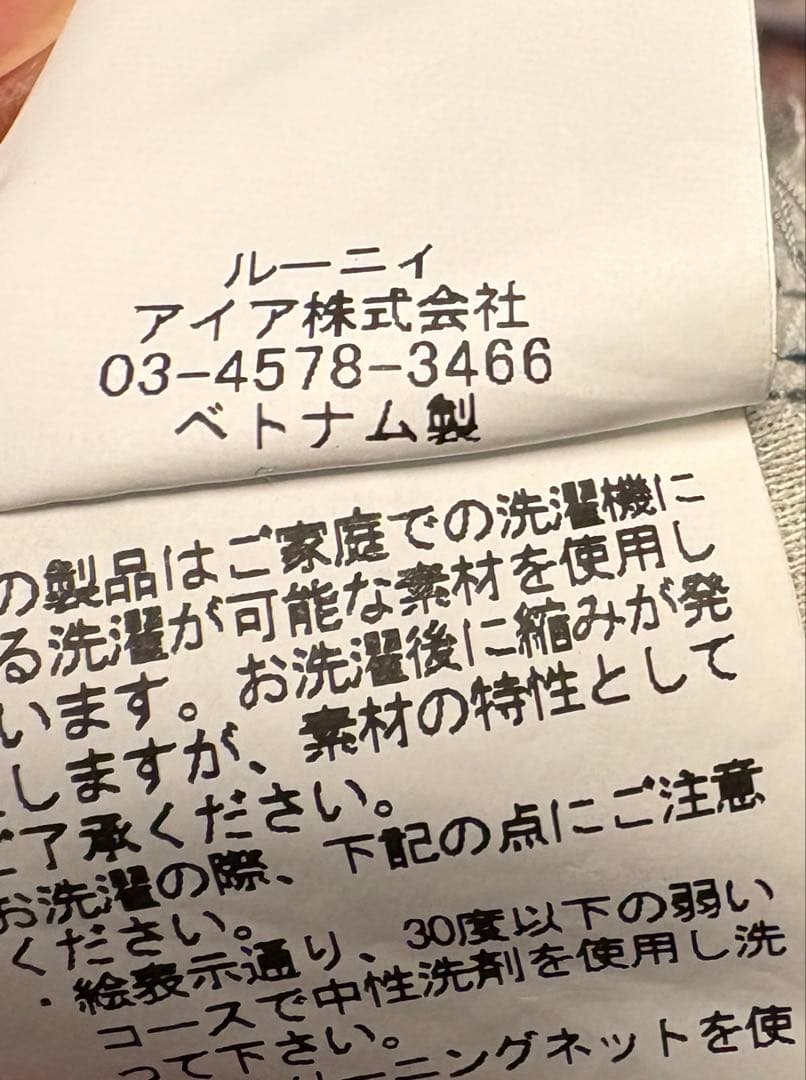 ルーニィ
アイア株式会社
03-4578-3466
ベトナム製
の製品はご家庭での洗濯機に
る洗濯が可能な素材を使用し
います。お洗濯後に縮みが発
しますが、素材の特性として
ご了承ください。
お洗濯の際、下記の点にご注意
ください。
・絵表示通り、30度以下の弱い
コースで中性洗剤を使用し洗
って下さい。
リーニングネットを使